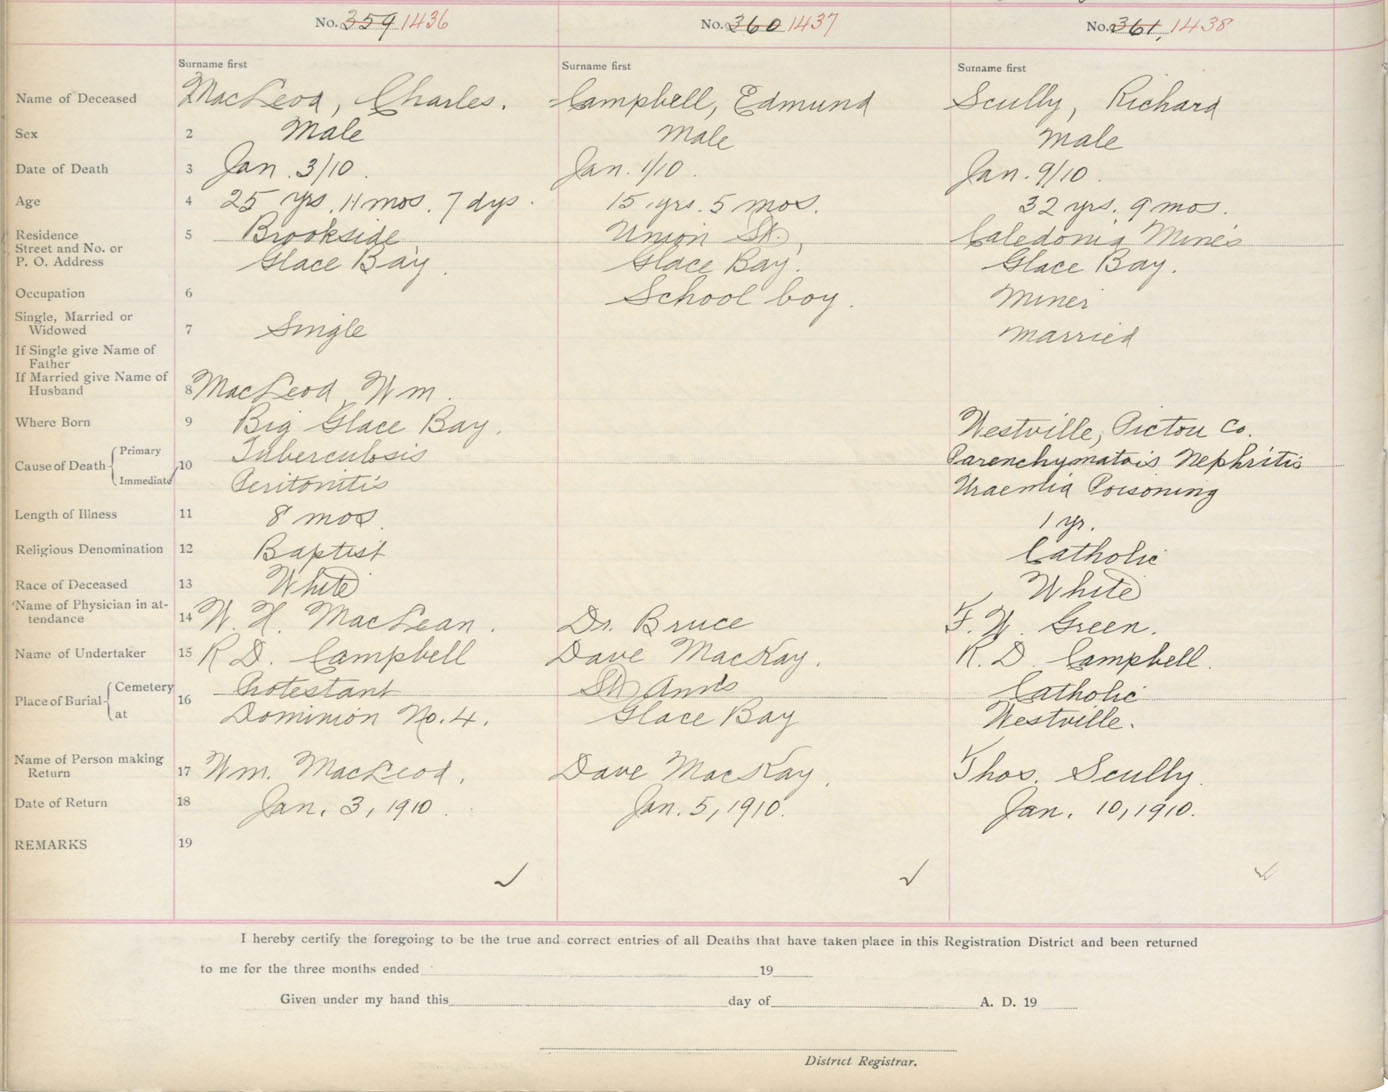 No. 359 1436 No. 360 1437 No. 361, 1438
Surname first Surname first Surname first
Name of Deceased MacLeod, Charles. Campbell, Edmund Scully, Richard
Sex 2 Male Male Male
Date of Death 3 Jan. 3/10. Jan. 1/10. Jan. 9/10.
Age 4 25 yrs. 11 mos. 7 dys. 15 yrs. 5 mos. 32 yrs. 9 mos.
Residence 5 Brookside, Union St., Caledonia Mines
Street and No. or
P. O. Address Glace Bay. Glace Bay. Glace Bay.
Occupation 6 School boy. Miner
Single, Married or
Widowed 7 Single Married
If Single give Name of
Father
If Married give Name of
Husband 8 MacLeod, Wm.
Where Born 9 Big Glace Bay. Westville, Pictou Co.
Cause of Death Primary 10 Tuberculosis Parenchymatois Nephritis
Immediate Peritonitis Uraemia Poisoning
Length of Illness 11 8 mos. 1 yr.
Religious Denomination 12 Baptist Catholic
Race of Deceased 13 White White
Name of Physician in at-
tendance 14 W. H. MacLean. Dr. Bruce F. W. Green.
Name of Undertaker 15 R D. Campbell Dave MacKay. R. D. Campbell.
Place of Burial Cemetery 16 Protestant St. Ann's Catholic
at Dominion No. 4. Glace Bay Westville.
Name of Person making
Return 17 Wm. MacLeod. Dave MacKay. Thos. Scully.
Date of Return 18 Jan. 3, 1910. Jan. 5, 1910. Jan. 10, 1910.
REMARKS 19
I hereby certify the foregoing to be the true and correct entries of all Deaths that have taken place in this Registration District and been returned
to me for the three months ended 19
Given under my hand this day of A. D. 19
District Registrar.